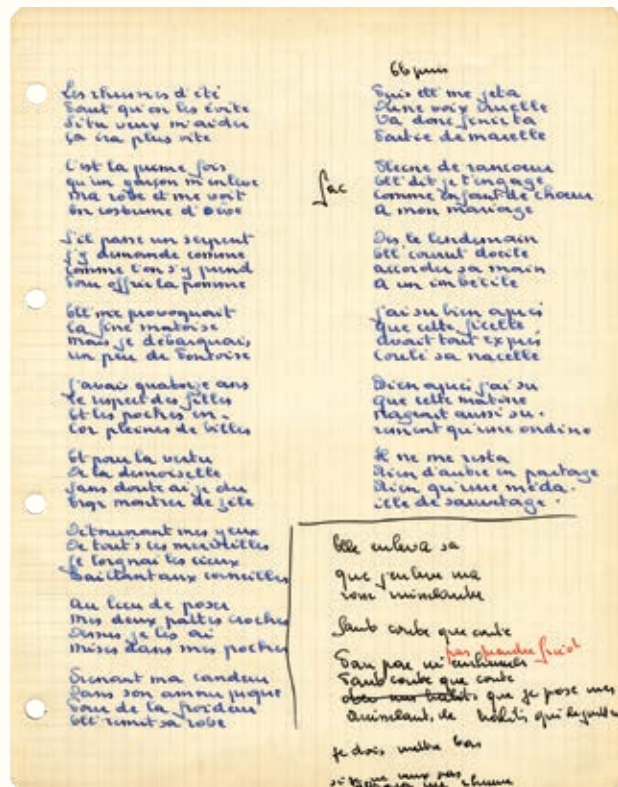 Les rhumes d'été
Faut qu'on les évite
Si tu veux m'aider
Ça ira plus vite
C'est la prème fois
qu'un garçon m'enlève
Ma robe et me voit
En costume d'Eve
S'il passe un serpent
J'y demande comme
Comme l'on s'y prend
Pour offrir la pomme
Ell' me provoquait
La fine matoise
Mais je débarquais
Un peu de Pontoise
J'avais quatorze ans
Le respect des filles
Et les poches en-
cor pleines de billes
Et pour la vertu
De la demoiselle
Sans doute ai je du
Trop montrer de zèle
Détournant mes yeux
De tout's ces merveilles
Je lorgnai les cieux
Baillant aux corneilles
Au lieu de poser
Mes deux pattes croches
Dessus je les ai
Mises dans mes poches
Prenant ma candeur
Dans son amour propre
Pour de la froideur
Ell' remit sa robe
Puis ell' me jeta
D'une voix cruelle
Va donc finir ta
Partie de marelle
Sac
Pleine de rancoeur
Ell' dit je t'engage
Comme enfant de choeur
A mon mariage
Dès le lendemain
Ell' courut docile
accorder sa main
A un imbécile
J'ai su bien après
Que cette ficelle
Avait tout exprès
Coulé sa nacelle
Bien après j'ai su
que cette matoise
Nageait aussi su-
rement qu'une ondine
Il ne me resta
Rien d'autre en partage
Rien qu'une méda-
ille de sauvetage.
Elle enleva sa
que j'enlève ma
robe ruisselante
Faut coute que coute
pas prendre froid
Pour pas m'enrhumer
Faut coute que coute
que je pose mes
ruisselants, de habits qui
je dois mettre bas